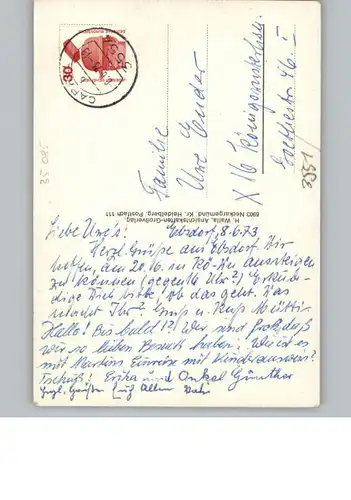 Familie
Uwe Ender
X 16 Königswusterhausen
Goethestr. 46 I
3951/
35 085
30
H. Walla, Ansichtskarten-Großverlag,
6903 Neckargemünd, Kr. Heidelberg, Postfach 111
Liebe Uwe's! Ebsdorf, 8.6.73
Herzl. Grüße aus Ebsdorf. Wir
hoffen, am 20.6. in Kö- aussteigen
zu können (gegen 14 Uhr?) Erkun-
dige Dich bitte, ob das geht. Was
macht Ihr? Gruß u. Kuß Mutti
Hallo! Bis bald!?! Wir sind froh, daß
wir so lieben Besuch haben! Wie ist es
mit Martins Einreise mit Kinderausweis?
Tschüß! Erika und Onkel Günther
Herzl. Grüße Euch Allen Vati